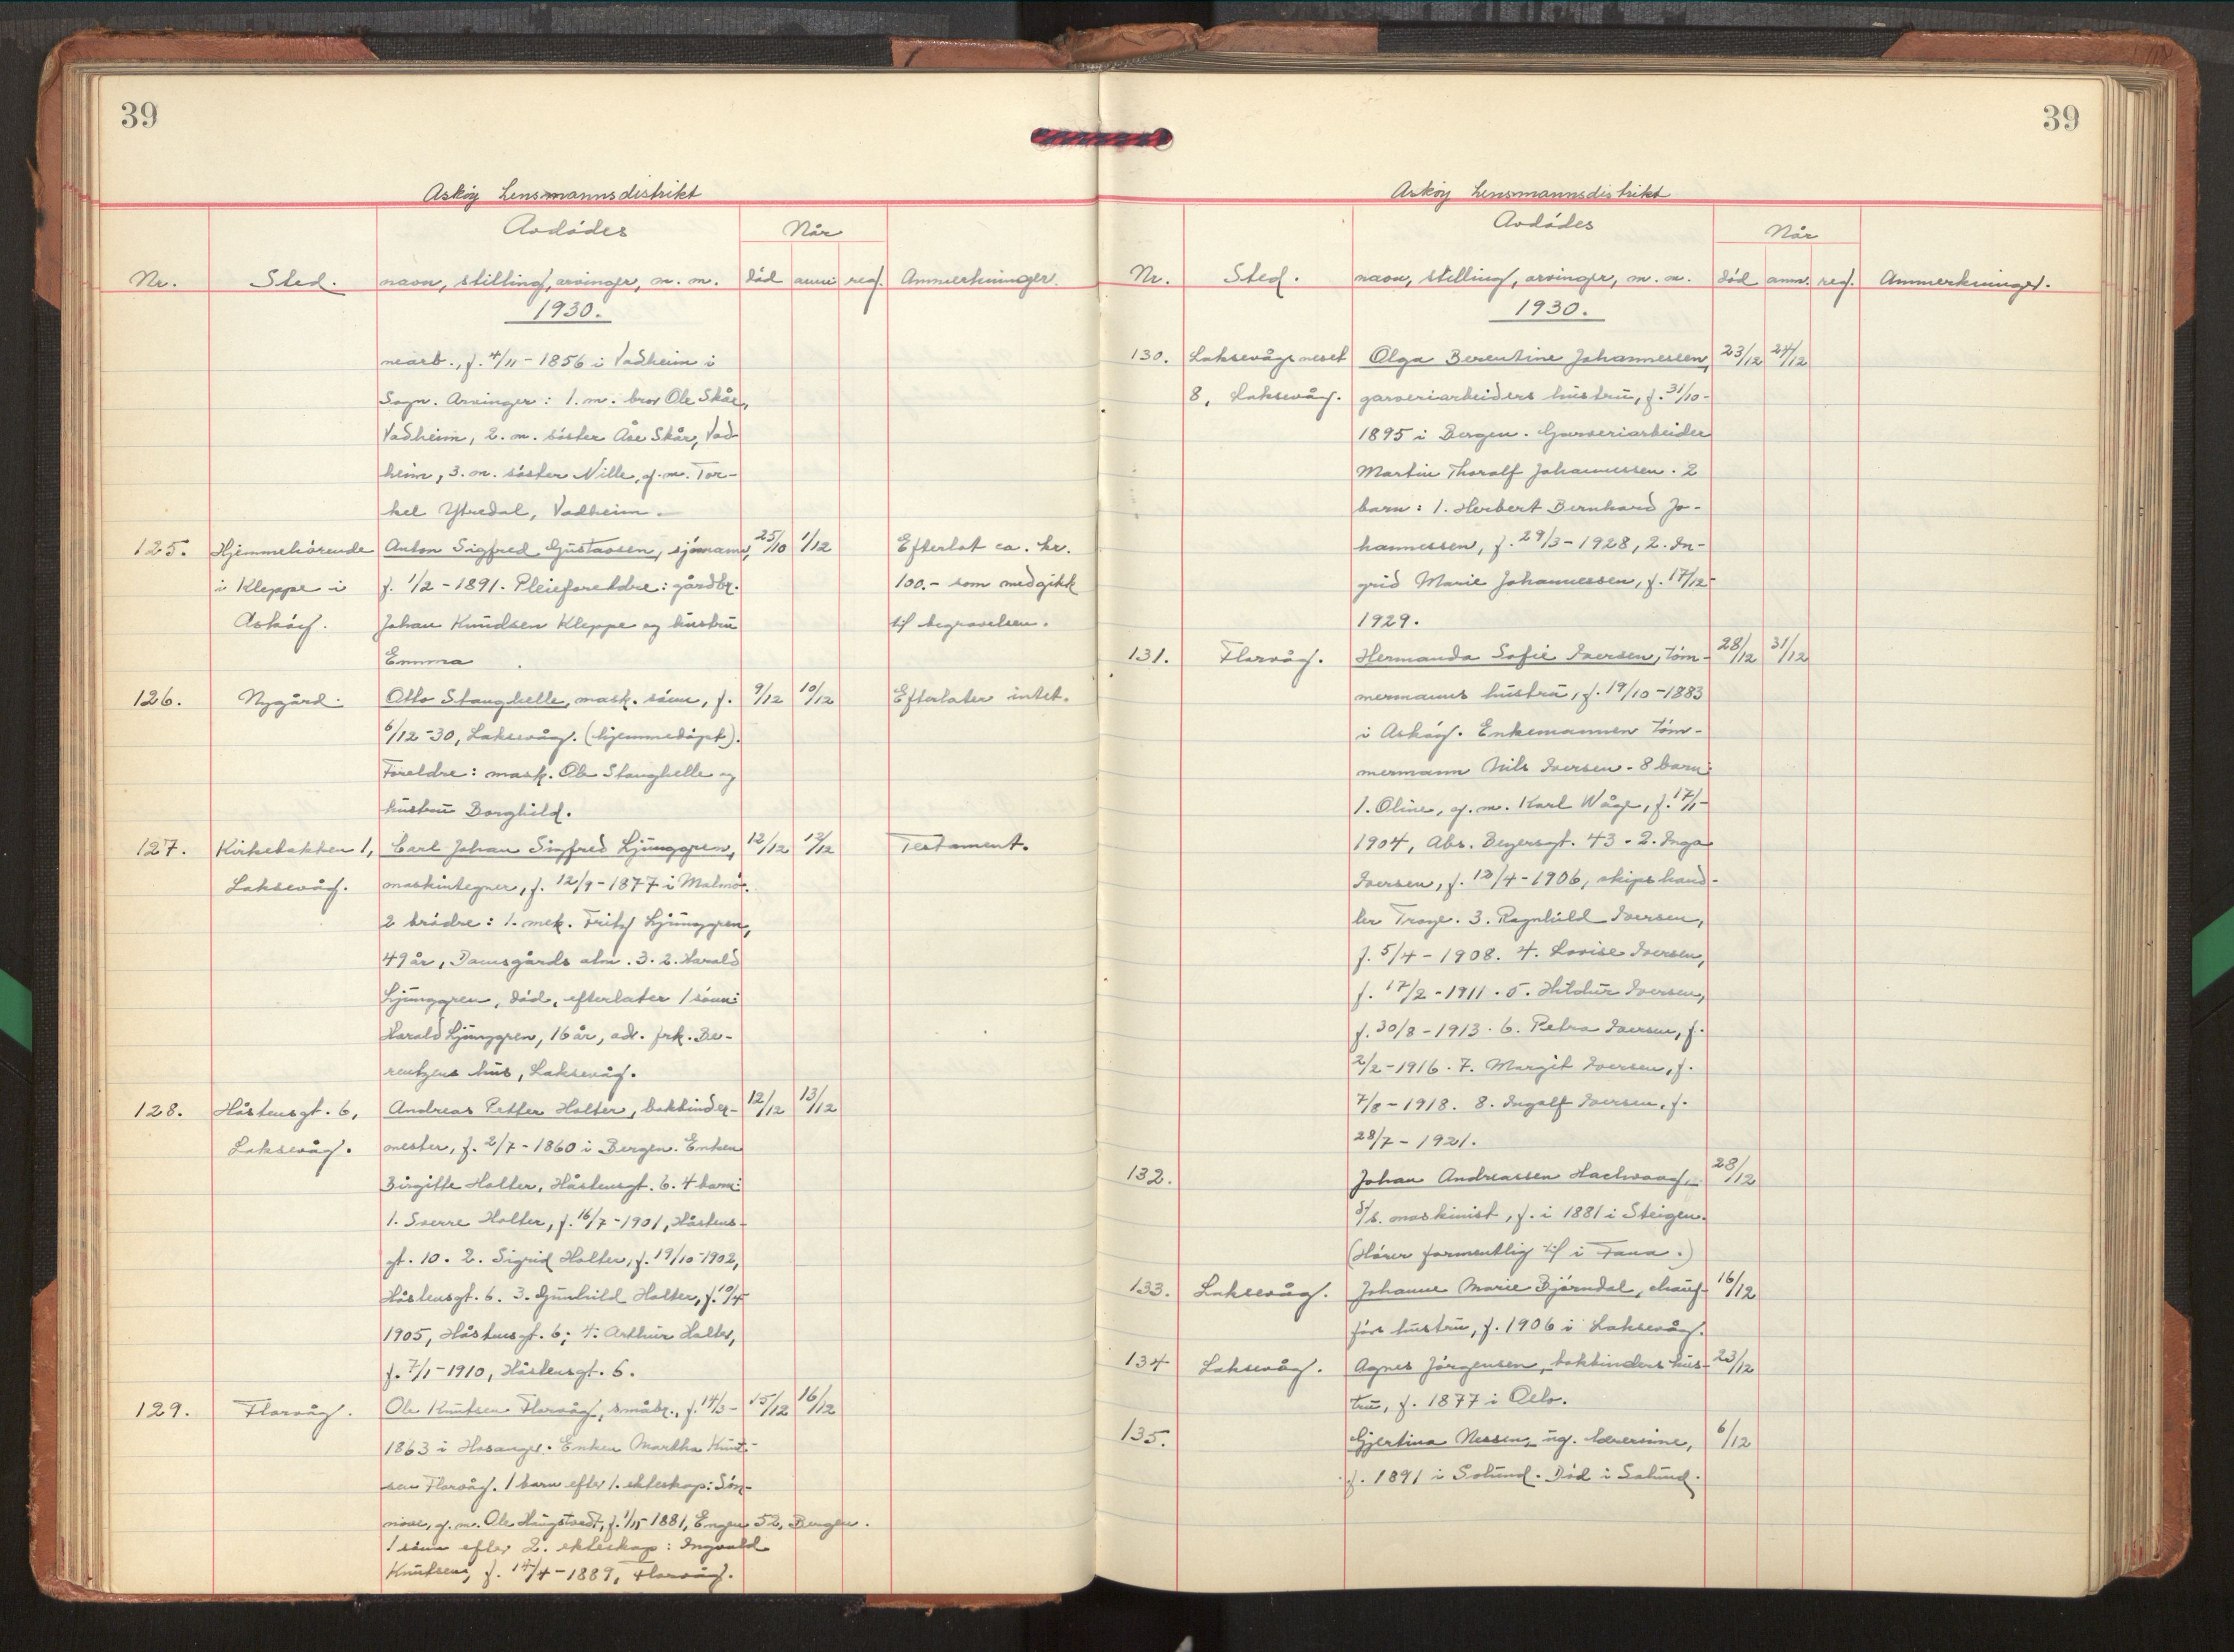 39
Askøy Lensmannsdistrikt
Avdødes
Når
Nr. Sted. navn, stilling, arvinger, m. m. død anm reg. Anmerkninger.
1930.
nearb., f. 4/11 - 1856 i Vadheim i
Sogn. Arvinger: 1. m. bror Ole Skår,
Vadheim, 2. m. söster Åse Skår, Vad
heim, 3. m. söster Nille, g. m. Tor-
kel Ytredal, Vadheim.
125. Hjemmehörende Anton Sigfred Gustavsen, sjömann, 25/10 1/12 Efterlot ca. kr.
i Kleppe i f. 1/2 - 1891. Pleieforeldre: gårdbr. 100.- som medgikk
Askøy. Johan Knudsen Kleppe og hustru til begravelsen.
Emma
126. Nygård. Otto Stanghelle, mask. sönn, f. 9/12 10/12 Efterlater intet.
6/12-30, Laksevåg. (hjemmedöpt).
Foreldre: mask. Ole Stanghelle og
hustru Borghild.
127. Kirkebakken 1, Carl Johan Sigfred Ljunggren, 12/12 12/12 Testament.
Laksevåg. maskintegner, f. 12/9 - 1877 i Malmö.
2 brödre: 1. mek. Fritz Ljunggren,
49 år, Damsgårds alm. 3. 2. Harald
Ljunggren, död, efterlater 1 sönn:
Harald Ljunggren, 16 år, adr. frk. Be-
rentzens hus, Laksevåg.
128. Håstensgt. 6, Andreas Petter Holter, bokbinder- 12/12 13/12
Laksevåg. mester, f. 2/7 - 1860 i Bergen. Enken
Birgitte Holter, Håstensgt. 6. 4 barn:
1. Sverre Holter, f. 16/7 - 1901, Håstens-
gt. 10. 2. Sigrid Holter, f. 19/10-1902,
Håstensgt. 6. 3. Gunhild Holter, f. 10/4
1905, Håstensgt. 6; 4. Arthur Holter,
f. 7/1 - 1910, Håstensgt. 6.
129. Florvåg. Ole Knutsen Florvåg, småbr., f. 14/3 - 15/12 16/12
1863 i Hosanger. Enken Martha Knut-
sen Florvåg. 1 barn efter 1. ekteskap: Sön-
növe, g. m. Ole Haugstvedt, f. 1/5 1881, Engen 52, Bergen.
1 sönn efter 2. ekteskap: Ingvald
Knutsen, f. 14/4 - 1889, Florvåg.
39
Askøy Lensmannsdistrikt
Avdødes
Når
Nr. Sted. navn, stilling, arvinger, m. m. död anm. reg. Anmerkninger.
1930.
130. Laksevågneset Olga Berentine Johannessen, 23/12 24/12
8, Laksevåg. garveriarbeiders hustru, f. 31/10 -
1895 i Bergen. Garveriarbeider
Martin Thoralf Johannessen. 2
barn: 1. Herbert Bernhard Jo-
hannessen, f. 29/3 - 1928, 2. In-
grid Marie Johannessen, f. 17/12 -
1929.
131. Florvåg. Hermanda Sofie Iversen, töm- 28/12 31/12
mermanns hustru, f. 19/10 - 1883
i Askøy. Enkemannen töm-
mermann Nils Iversen. 8 barn:
1. Oline, g. m. Karl Våge, f. 17/1 -
1904, Abs. Beyersgt. 43. 2. Inga
Iversen, f. 13/4 - 1906, skipshand-
ler Troye. 3. Ragnhild Iversen,
f. 5/4 - 1908. 4. Lovise Iversen,
f. 17/2 - 1911. 5. Hildur Iversen,
f. 30/8 - 1913. 6. Petra Iversen, f.
2/2 - 1916. 7. Margit Iversen, f.
7/8 - 1918. 8. Ingolf Iversen, f.
28/7 - 1921.
132. Johan Andreassen 28/12
maskinist, f. i 1881 i Steigen.
(Hörer formentlig til i Fana.)
133. Laksevåg. Johanne Marie Björndal, chauf- 16/12
förs hustru, f. 1906 i Laksevåg.
134 Laksevåg. Agnes Jörgensen, bokbinders hus- 23/12
tru, f. 1877 i Oslo.
135. Gjertina Nessen, ug. 6/12
f. 1891 i Solund. Död i Solund.